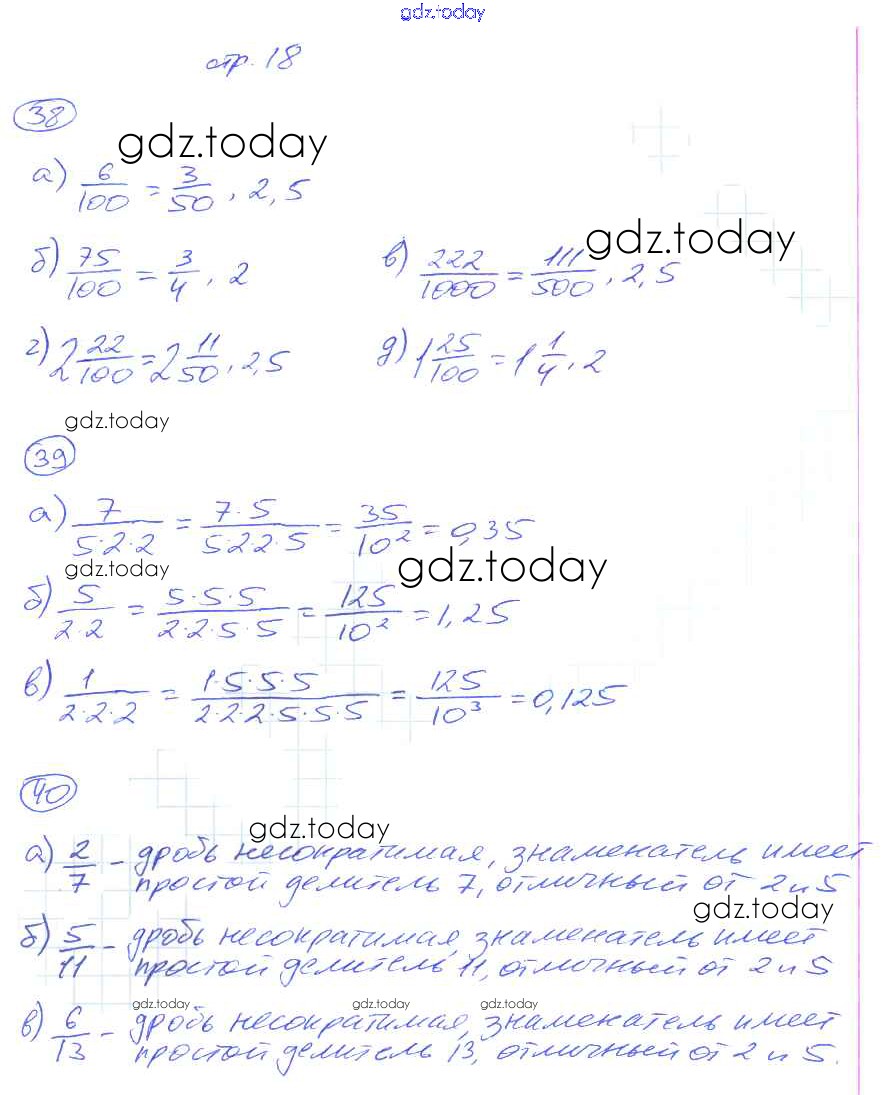 gdz.today
стр. 18
38
gdz.today
а) 6/100 = 3/50, 2,5
gdz.today
б) 75/100 = 3/4, 2 в) 222/1000 = 111/500, 2,5
г) 2 22/100 = 2 11/50, 2,5 д) 1 25/100 = 1 1/4, 2
gdz.today
39
а) 7/(5·2·2) = 7·5/(5·2·2·5) = 35/10² = 0,35
gdz.today gdz.today
б) 5/(2·2) = 5·5·5/(2·2·5·5) = 125/10² = 1,25
в) 1/(2·2·2) = 1·5·5·5/(2·2·2·5·5·5) = 125/10³ = 0,125
40
gdz.today
а) 2/7 – дробь несократимая, знаменатель имеет
простой делитель 7, отличный от 2 и 5
gdz.today
б) 5/11 – дробь несократимая, знаменатель имеет
простой делитель 11, отличный от 2 и 5
gdz.today gdz.today gdz.today
в) 6/13 – дробь несократимая, знаменатель имеет
простой делитель 13, отличный от 2 и 5.